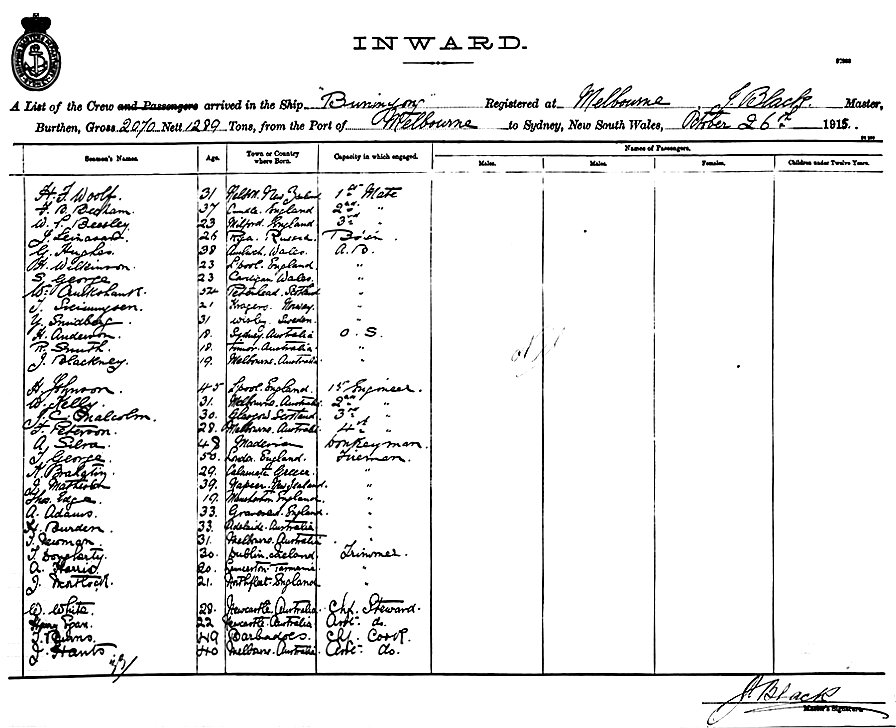 INWARD.
A List of the Crew and Passengers arrived in the Ship "Buninyon" Registered at Melbourne J. Black Master,
Burthen, Gross 2070 Nett 1289 Tons, from the Port of Melbourne to Sydney, New South Wales, October 26th 1915.
Names of Passengers.
Seamen's Names. Age. Town or Country where Born. Capacity in which engaged. Males. Males. Females. Children under Twelve Years.
H. F. Woolf. 31 Nelson. New Zealand 1st Mate
37 England 2nd "
W. Beesley 23 Milford. England 3rd "
J. 26 Riga. Russia Bosn.
G. Hughes 38 Amlwch. Wales A.B.
H. Wilkinson. 23 L'pool. England. "
S. George 23 Cardigan Wales. "
Wm. Peterhead. Scotland "
T. 21 Kragero. Norway. "
31 Wisby. Sweden. "
H. Anderson. 18. Sydney. Australia O.S.
R. Smith. 18. Australia "
J. Blackney. 19. Melbourne. Australia "
H. Johnson. 45 L'pool. England. 1st Engineer.
W. Kelly. 31. Melbourne. Australia 2nd "
J. C. Malcolm. 30. Glasgow Scotland. 3rd "
F. Peterson. 28. Melbourne. Australia 4th "
A. Silva. 48 Maderia Donkeyman
T. George. 50. London. England. Fireman.
29. Calamata Greece. "
J. 39. Napier. New Zealand. "
Thos. Edge. 19. Manchester. England. "
A. Adams. 33. Gravesend. England "
H. Burden. 33. Adelaide. Australia "
J. Newman. 31. Melbourne. Australia "
T. Dougharty. 30. Dublin. Ireland. Trimmer.
A. Harris. 20. Launceston. Tasmania. "
J. Matlock. 21. Northfleet. England "
W. White. 28. Newcastle. Australia. Chf. Steward.
Henry 22 Newcastle. Australia. Asst. do.
T. Burns. 49 Barbadoes. Chf. Cook.
J. Hants 40 Melbourne. Australia. Asst. do.
J. Black
Master's Signature.